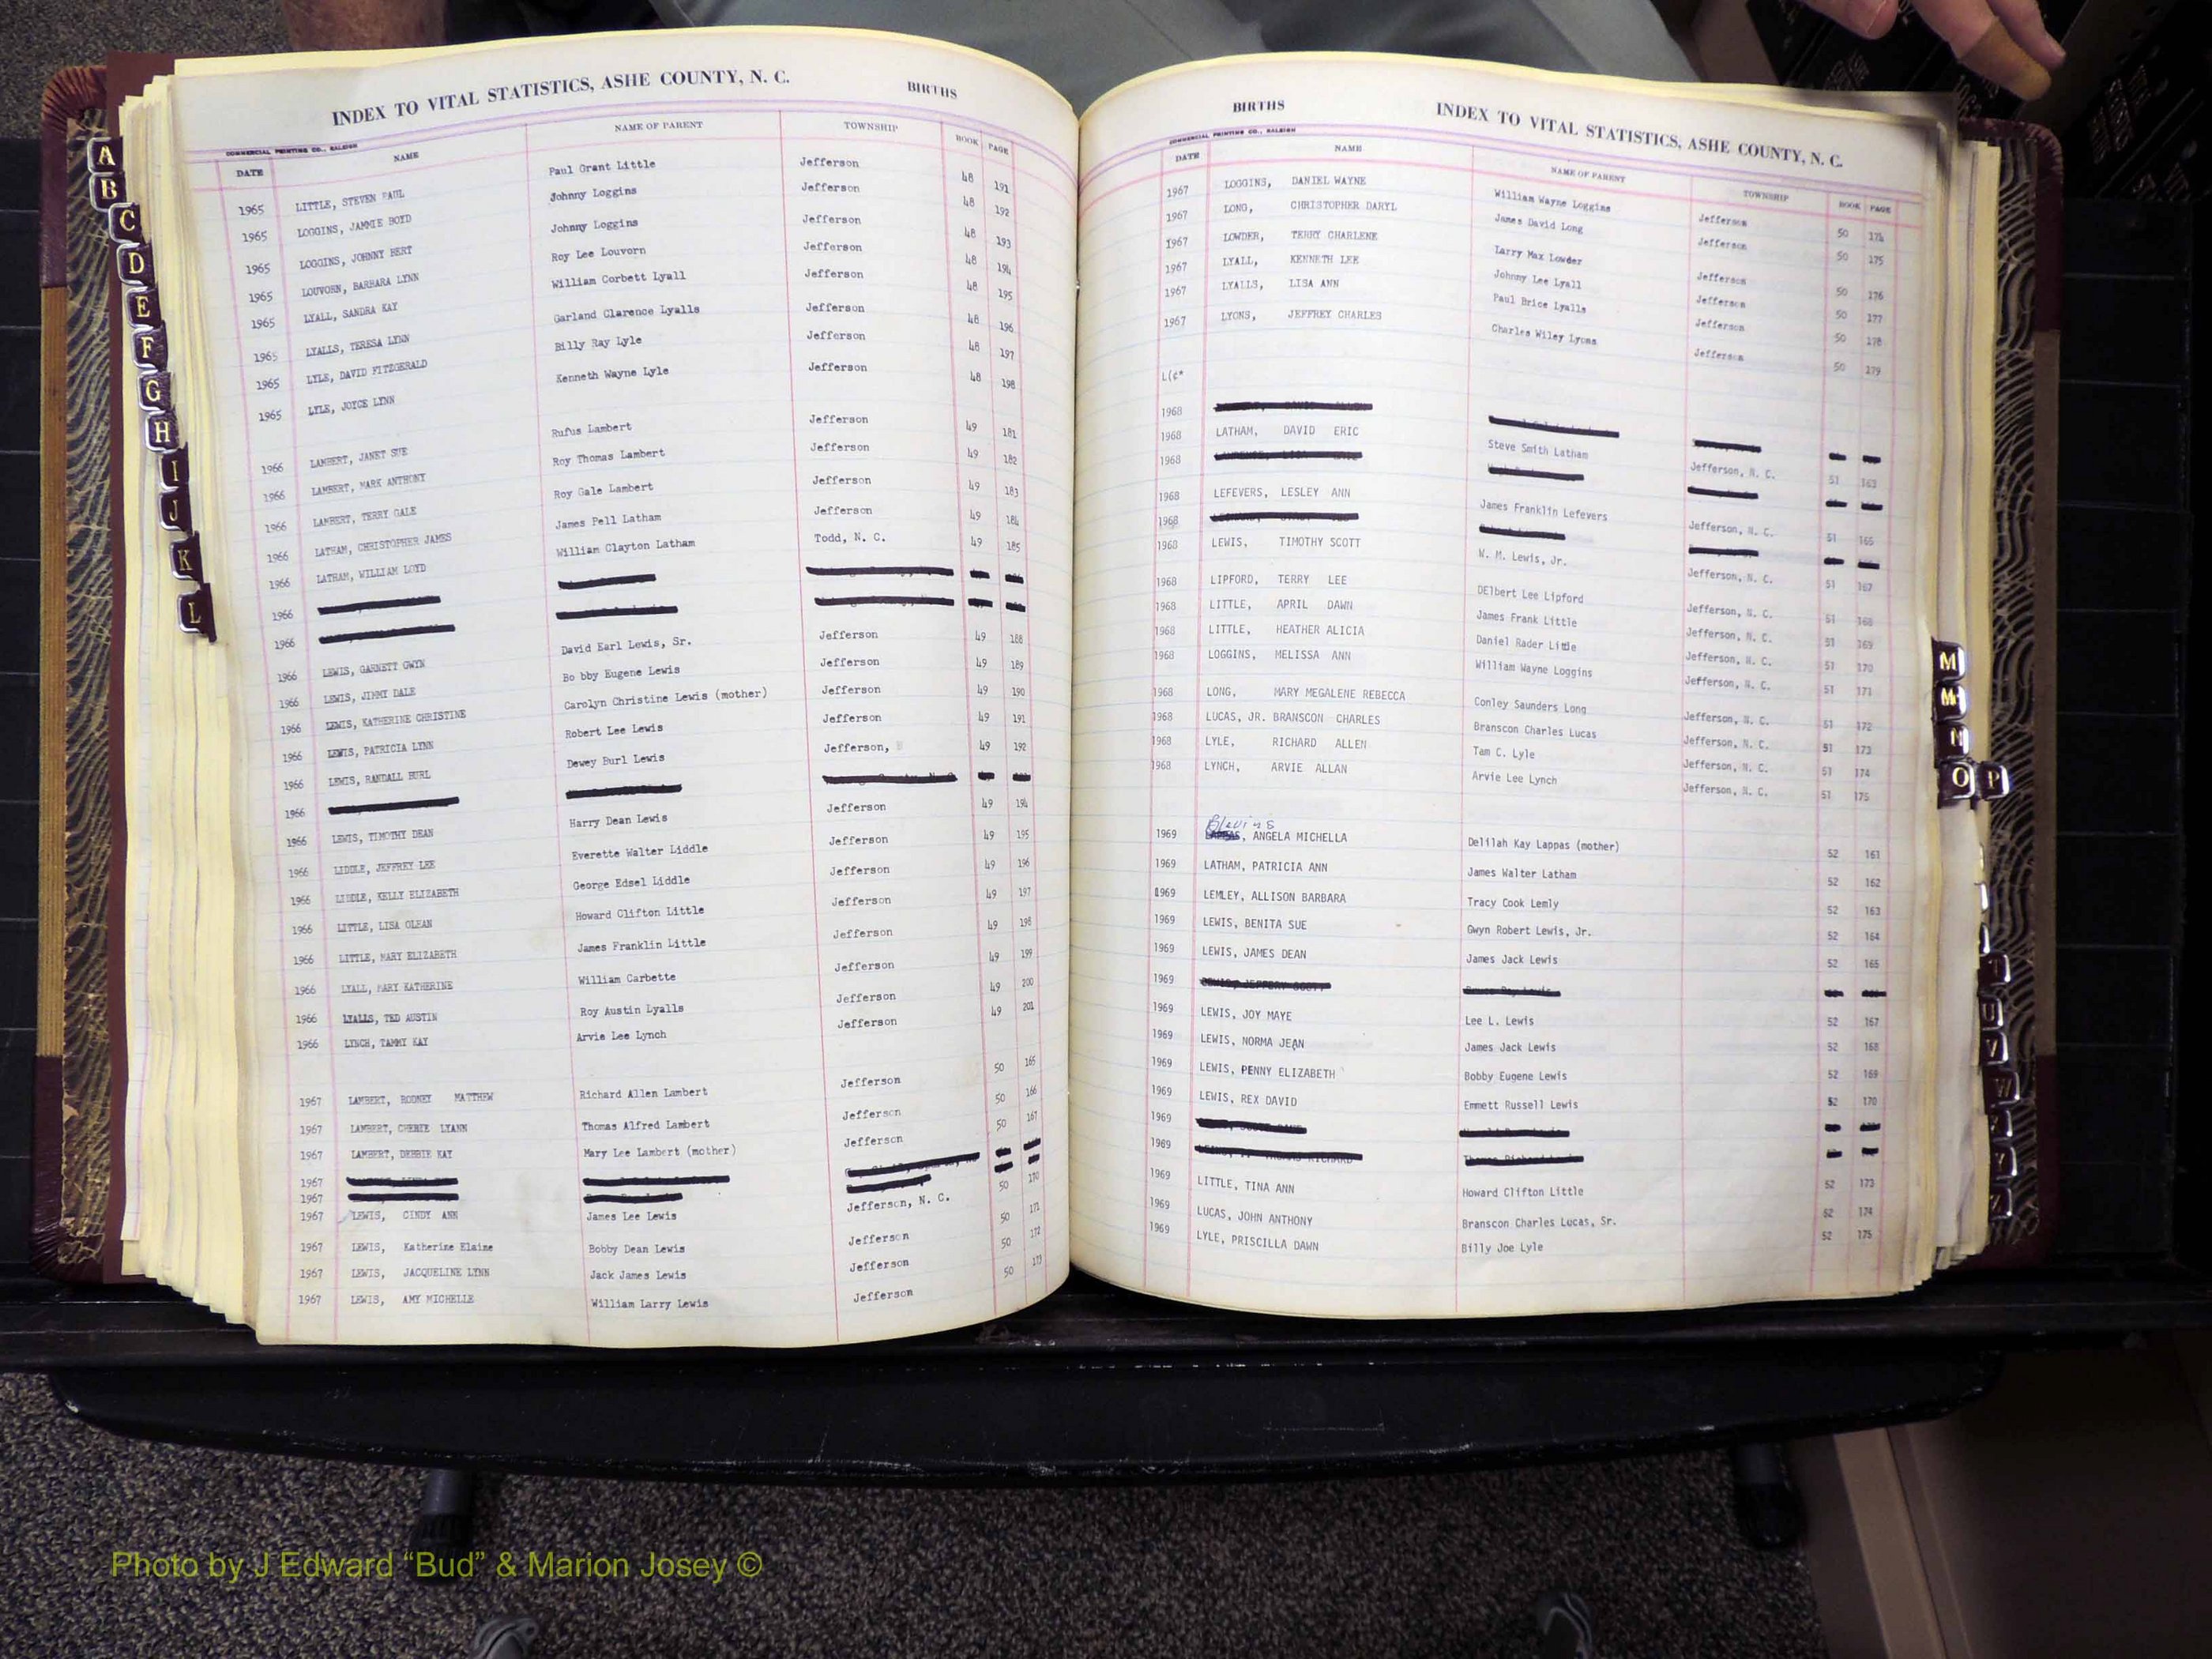 INDEX TO VITAL STATISTICS, ASHE COUNTY, N. C. BIRTHS
COMMERCIAL PRINTING CO., RALEIGH
DATE NAME NAME OF PARENT TOWNSHIP BOOK PAGE
1965 LITTLE, STEVEN PAUL Paul Grant Little Jefferson 48 191
1965 LOGGINS, JAMMIE BOYD Johnny Loggins Jefferson 48 192
1965 LOGGINS, JOHNNY BERT Johnny Loggins Jefferson 48 193
1965 LOUVORN, BARBARA LYNN Roy Lee Louvorn Jefferson 48 194
1965 LYALL, SANDRA KAY William Corbett Lyall Jefferson 48 195
1965 LYALLS, TERESA LYNN Garland Clarence Lyalls Jefferson 48 196
1965 LYLE, DAVID FITZGERALD Billy Ray Lyle Jefferson 48 197
1965 LYLE, JOYCE LYNN Kenneth Wayne Lyle Jefferson 48 198
1966 LAMBERT, JANET SUE Rufus Lambert Jefferson 49 181
1966 LAMBERT, MARK ANTHONY Roy Thomas Lambert Jefferson 49 182
1966 LAMBERT, TERRY GALE Roy Gale Lambert Jefferson 49 183
1966 LATHAM, CHRISTOPHER JAMES James Pell Latham Jefferson 49 184
1966 LATHAM, WILLIAM LOYD William Clayton Latham Todd, N. C. 49 185
1966
1966
1966 LEWIS, GARNETT GWYN David Earl Lewis, Sr. Jefferson 49 188
1966 LEWIS, JIMMY DALE Bo bby Eugene Lewis Jefferson 49 189
1966 LEWIS, KATHERINE CHRISTINE Carolyn Christine Lewis (mother) Jefferson 49 190
1966 LEWIS, PATRICIA LYNN Robert Lee Lewis Jefferson 49 191
1966 LEWIS, RANDALL BURL Dewey Burl Lewis Jefferson, 49 192
1966
1966 LEWIS, TIMOTHY DEAN Harry Dean Lewis Jefferson 49 194
1966 LIDDLE, JEFFREY LEE Everette Walter Liddle Jefferson 49 195
1966 LIDDLE, KELLY ELIZABETH George Edsel Liddle Jefferson 49 196
1966 LITTLE, LISA OLEAN Howard Clifton Little Jefferson 49 197
1966 LITTLE, MARY ELIZABETH James Franklin Little Jefferson 49 198
1966 LYALL, MARY KATHERINE William Carbette Jefferson 49 199
1966 LYALLS, TED AUSTIN Roy Austin Lyalls Jefferson 49 200
1966 LYNCH, TAMMY KAY Arvie Lee Lynch Jefferson 49 201
1967 LAMBERT, RODNEY MATTHEW Richard Allen Lambert Jefferson 50 165
1967 LAMBERT, CHERIE LYANN Thomas Alfred Lambert Jefferson 50 166
1967 LAMBERT, DEBBIE KAY Mary Lee Lambert (mother) Jefferson 50 167
1967
1967
1967 LEWIS, CINDY ANN James Lee Lewis Jefferson, N. C. 50 170
1967 LEWIS, Katherine Elaine Bobby Dean Lewis Jefferson 50 171
1967 LEWIS, JACQUELINE LYNN Jack James Lewis Jefferson 50 172
1967 LEWIS, AMY MICHELLE William Larry Lewis Jefferson 50 173
BIRTHS INDEX TO VITAL STATISTICS, ASHE COUNTY, N. C.
COMMERCIAL PRINTING CO., RALEIGH
DATE NAME NAME OF PARENT TOWNSHIP BOOK PAGE
1967 LOGGINS, DANIEL WAYNE William Wayne Loggins Jefferson 50 174
1967 LONG, CHRISTOPHER DARYL James David Long Jefferson 50 175
1967 LOWDER, TERRY CHARLENE Larry Max Lowder Jefferson 50 176
1967 LYALL, KENNETH LEE Johnny Lee Lyall Jefferson 50 177
1967 LYALLS, LISA ANN Paul Brice Lyalls Jefferson 50 178
1967 LYONS, JEFFREY CHARLES Charles Wiley Lyons Jefferson 50 179
1968
1968 LATHAM, DAVID ERIC Steve Smith Latham Jefferson, N. C. 51 163
1968
1968 LEFEVERS, LESLEY ANN James Franklin Lefevers Jefferson, N. C. 51 165
1968
1968 LEWIS, TIMOTHY SCOTT W. M. Lewis, Jr. Jefferson, N. C. 51 167
1968 LIPFORD, TERRY LEE DElbert Lee Lipford Jefferson, N. C. 51 168
1968 LITTLE, APRIL DAWN James Frank Little Jefferson, N. C. 51 169
1968 LITTLE, HEATHER ALICIA Daniel Rader Little Jefferson, N. C. 51 170
1968 LOGGINS, MELISSA ANN William Wayne Loggins Jefferson, N. C. 51 171
1968 LONG, MARY MEGALENE REBECCA Conley Saunders Long Jefferson, N. C. 51 172
1968 LUCAS, JR. BRANSCON CHARLES Branscon Charles Lucas Jefferson, N. C. 51 173
1968 LYLE, RICHARD ALLEN Tam C. Lyle Jefferson, N. C. 51 174
1968 LYNCH, ARVIE ALLAN Arvie Lee Lynch Jefferson, N. C. 51 175
Blevins
1969 LAPPAS, ANGELA MICHELLA Delilah Kay Lappas (mother) 52 161
1969 LATHAM, PATRICIA ANN James Walter Latham 52 162
1969 LEMLEY, ALLISON BARBARA Tracy Cook Lemly 52 163
1969 LEWIS, BENITA SUE Gwyn Robert Lewis, Jr. 52 164
1969 LEWIS, JAMES DEAN James Jack Lewis 52 165
1969
1969 LEWIS, JOY MAYE Lee L. Lewis 52 167
1969 LEWIS, NORMA JEAN James Jack Lewis 52 168
1969 LEWIS, PENNY ELIZABETH Bobby Eugene Lewis 52 169
1969 LEWIS, REX DAVID Emmett Russell Lewis 52 170
1969
1969
1969 LITTLE, TINA ANN Howard Clifton Little 52 173
1969 LUCAS, JOHN ANTHONY Branscon Charles Lucas, Sr. 52 174
1969 LYLE, PRISCILLA DAWN Billy Joe Lyle 52 175
A
B
C
D
E
F
G
H
I
J
K
L
M
Mc
N
O P
Photo by J Edward “Bud” & Marion Josey ©